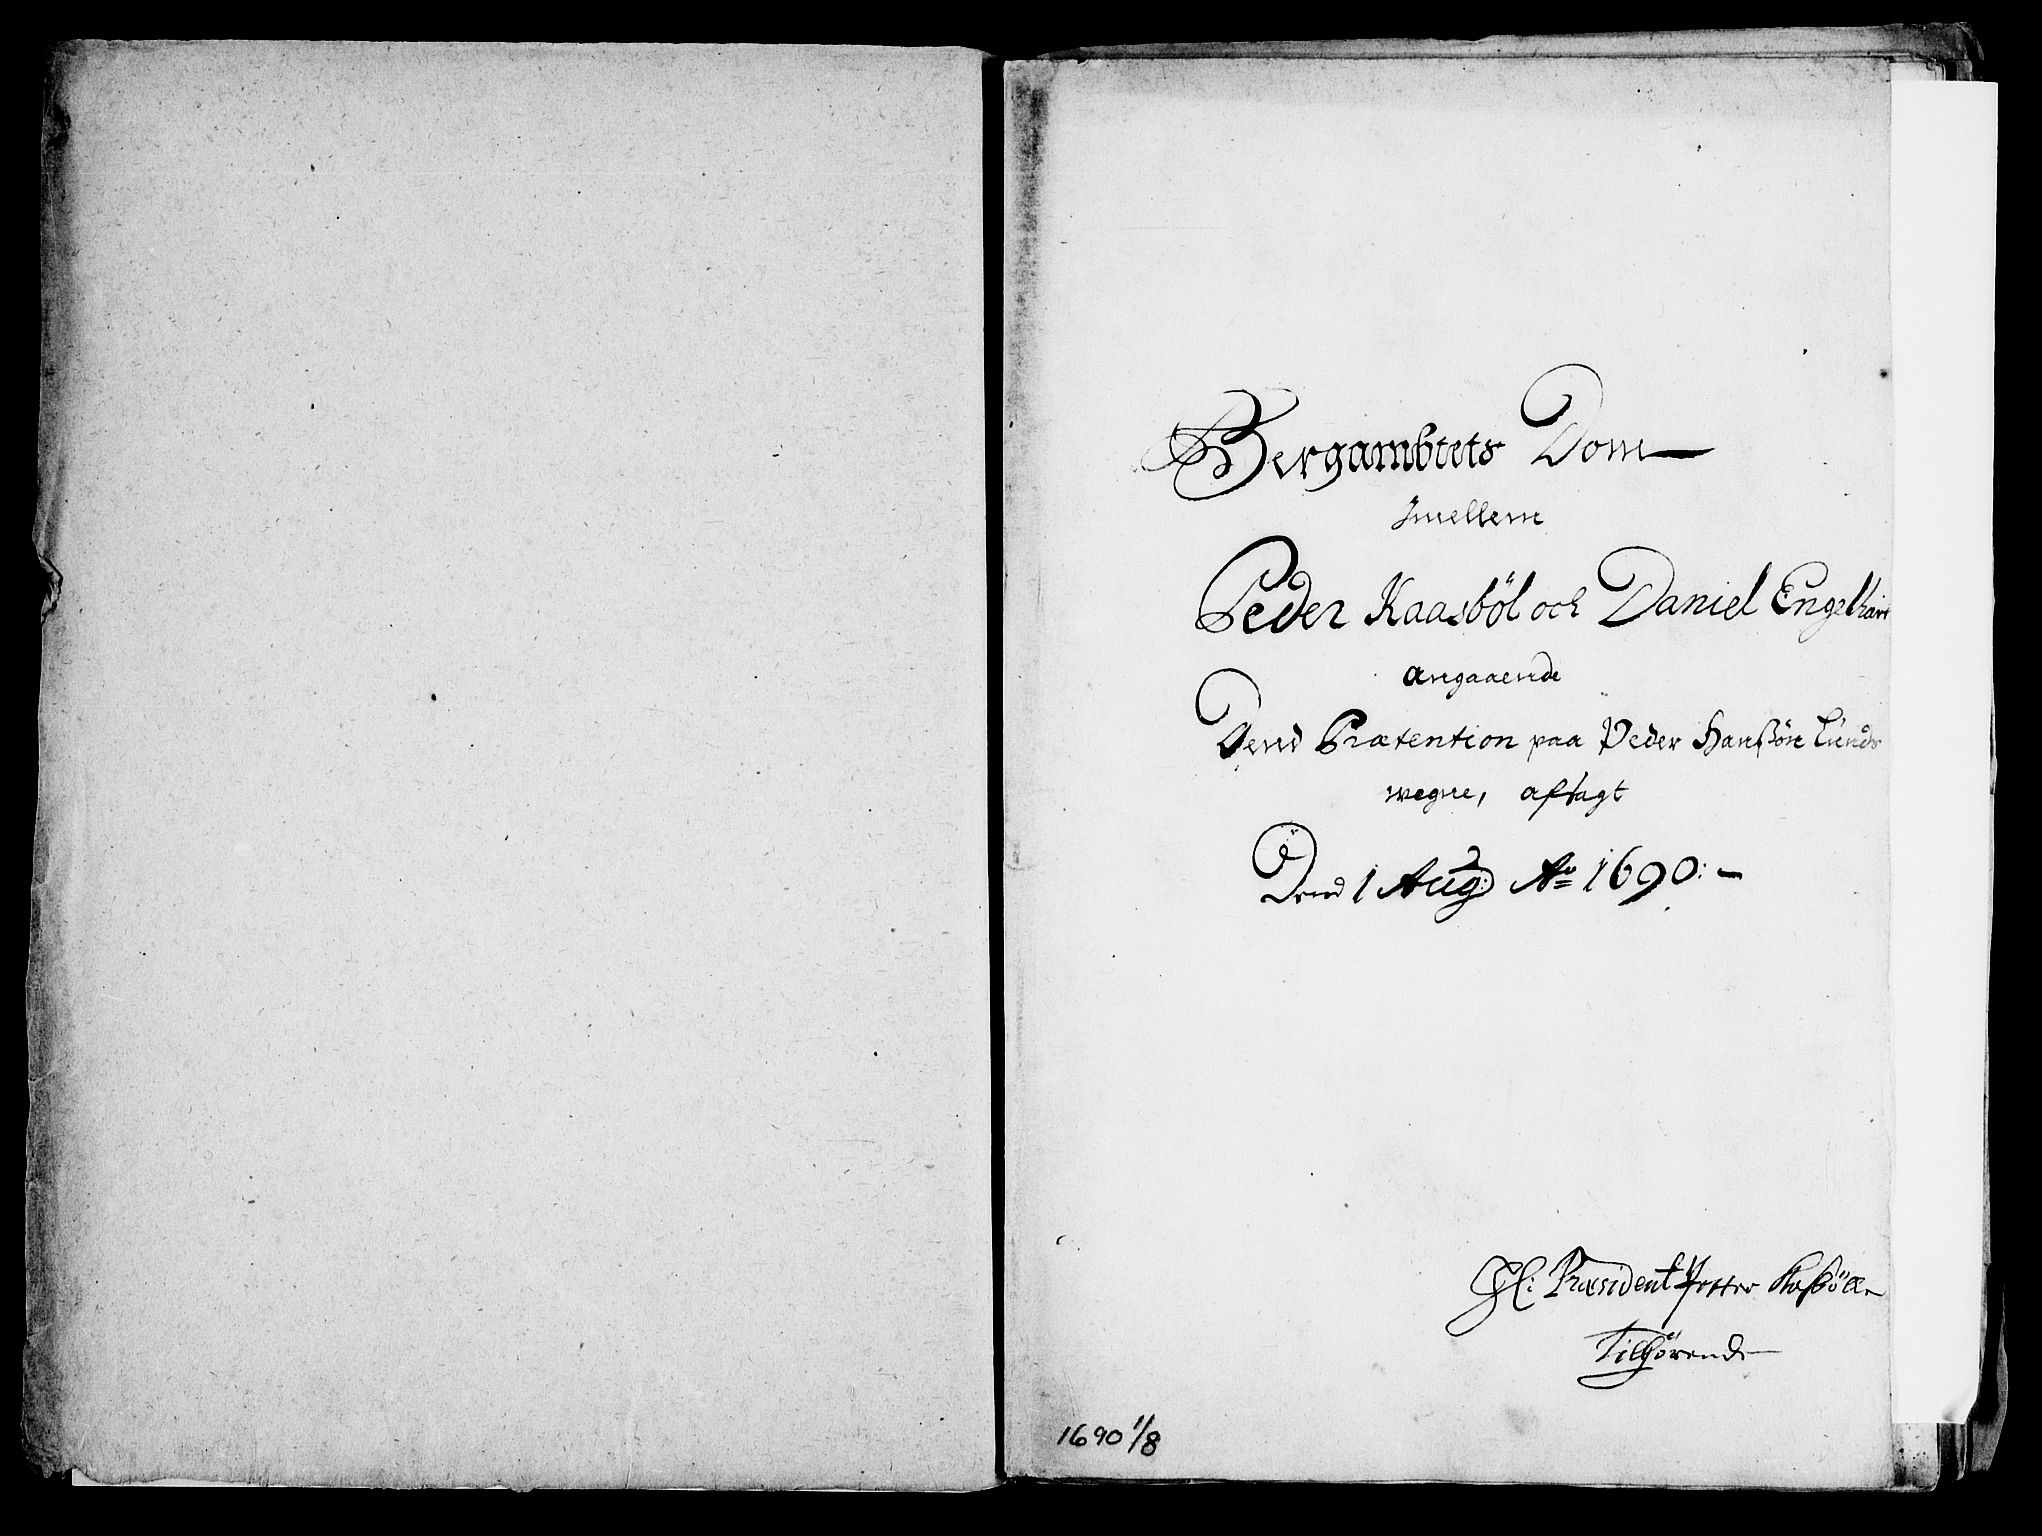 Bergambtets Dom
Imellem
Peder Kaasböl och Daniel Engelhart
angaaende
Dend Prætention paa Peder Hanßön Lunds
wegne, afsagt
Dend 1 Aug: Ao 1690:
Hl: Præsident Petter Kaßöll
Tilhörende
1690 1/8